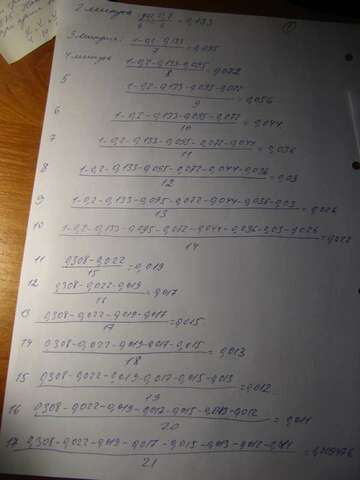 2 минута = 0,133
①
3 минута 1-0,2-0,133 / 7 = 0,095
4 минута 1-0,2-0,133-0,095 / 8 = 0,072
5 1-0,2-0,133-0,095-0,072 / 9 = 0,056
6 1-0,2-0,133-0,095-0,072 / 10 = 0,044
7 1-0,2-0,133-0,095-0,072-0,044 / 11 = 0,036
8 1-0,2-0,133-0,095-0,072-0,044-0,036 / 12 = 0,03
9 1-0,2-0,133-0,095-0,072-0,044-0,036-0,03 / 13 = 0,026
10 1-0,2-0,133-0,095-0,072-0,044-0,036-0,03-0,026 / 14 = 0,022
11 0,308-0,022 / 15 = 0,019
12 0,308-0,022-0,019 / 16 = 0,017
13 0,308-0,022-0,019-0,017 / 17 = 0,015
14 0,308-0,022-0,019-0,017-0,015 / 18 = 0,013
15 0,308-0,022-0,019-0,017-0,015-0,013 / 19 = 0,012
16 0,308-0,022-0,019-0,017-0,015-0,013-0,012 / 20 = 0,011
17 0,308-0,022-0,019-0,017-0,015-0,013-0,012-0,011 / 21